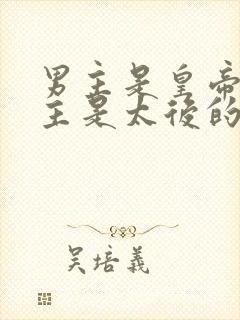 男主是皇帝
主是太後的
吴培義